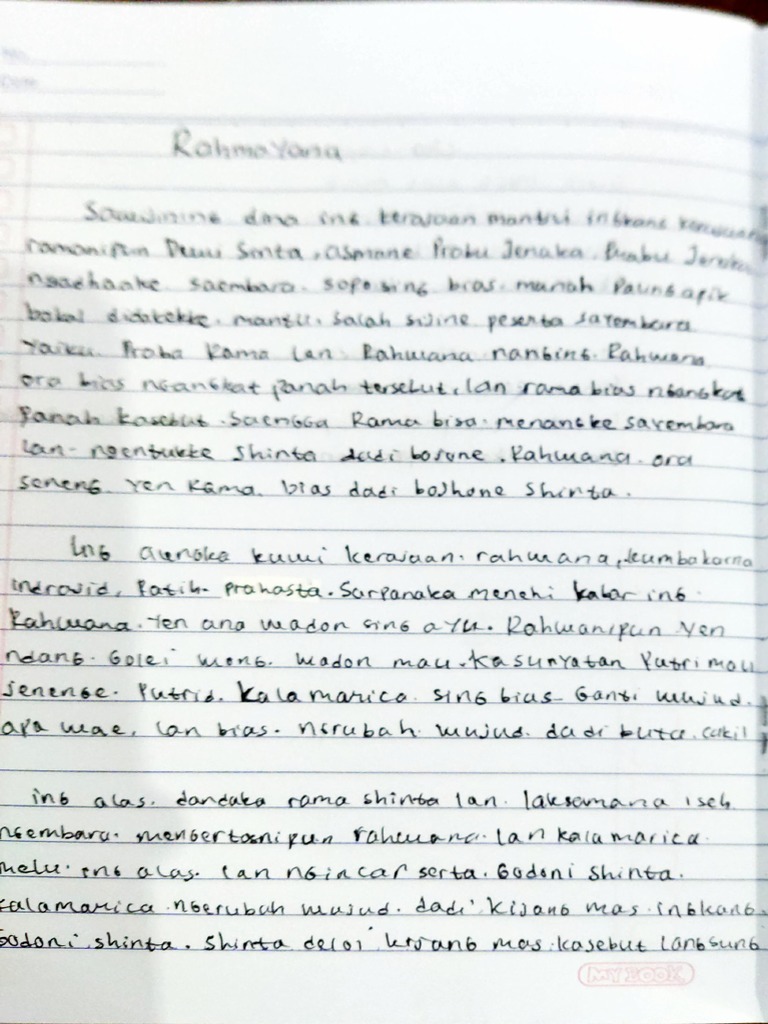 No.
Date
Rahmayana
Sawijining dina ing kerajaan mantri ingkang kerajaan
ramanipun Dewi Sinta, asmane Prabu Jenaka. Prabu Jenaka
ngadhaake saembara. sopo sing bias. manah Paung apik
bakal didakekke. mantu. salah sijine peserta sayembara
Yaiku. Praba Rama lan. Rahwana nanging. Rahwana
ora bias ngangkat panah tersebut, lan rama bias ngangkat
panah kasebut. Saengga Rama bisa. menangke sayembara
lan- ngentukke Shinta dadi bojone. Rahwana. ora
seneng. Yen Rama. bias dadi bojhone Shinta.
Ing alengka kuwi kerajaan. rahwana, kumbakarna
indrajid, Patih. prahasta. Sarpanaka menehi kabar ing.
Rahwana. Yen ana wadon sing ayu. Rahwanipun Yen
ndang. Golei wong. wadon mau. Kasunyatan Putri mau
jenenge. Putrid. Kalamarica. sing bias. Ganti wujud.
apa wae, lan bias. ngrubah. wujud. dadi buta. cakil
ing alas. dandaka rama shinta lan. laksamana iseh
ngembara. mengertosnipun rahwana. lan kalamarica.
melu. ing alas. lan ngincar serta. Godoni Shinta.
kalamarica. ngerubah wujud. dadi kijang mas. ingkang.
Godoni shinta. Shinta deloi kijang mas. kasebut langsung
MY BOOK